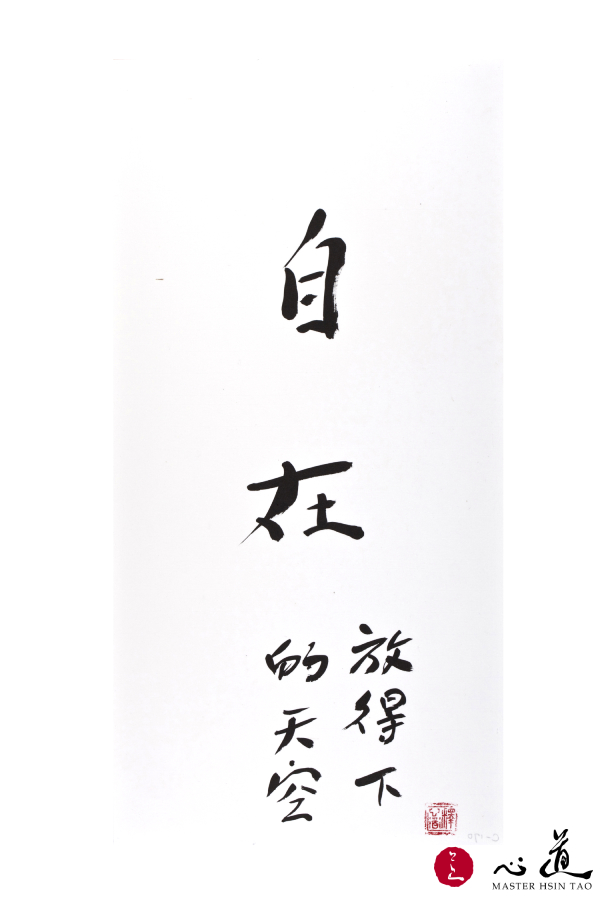 自在
放得下
的天空
釋心道
心道
MASTER HSIN TAO